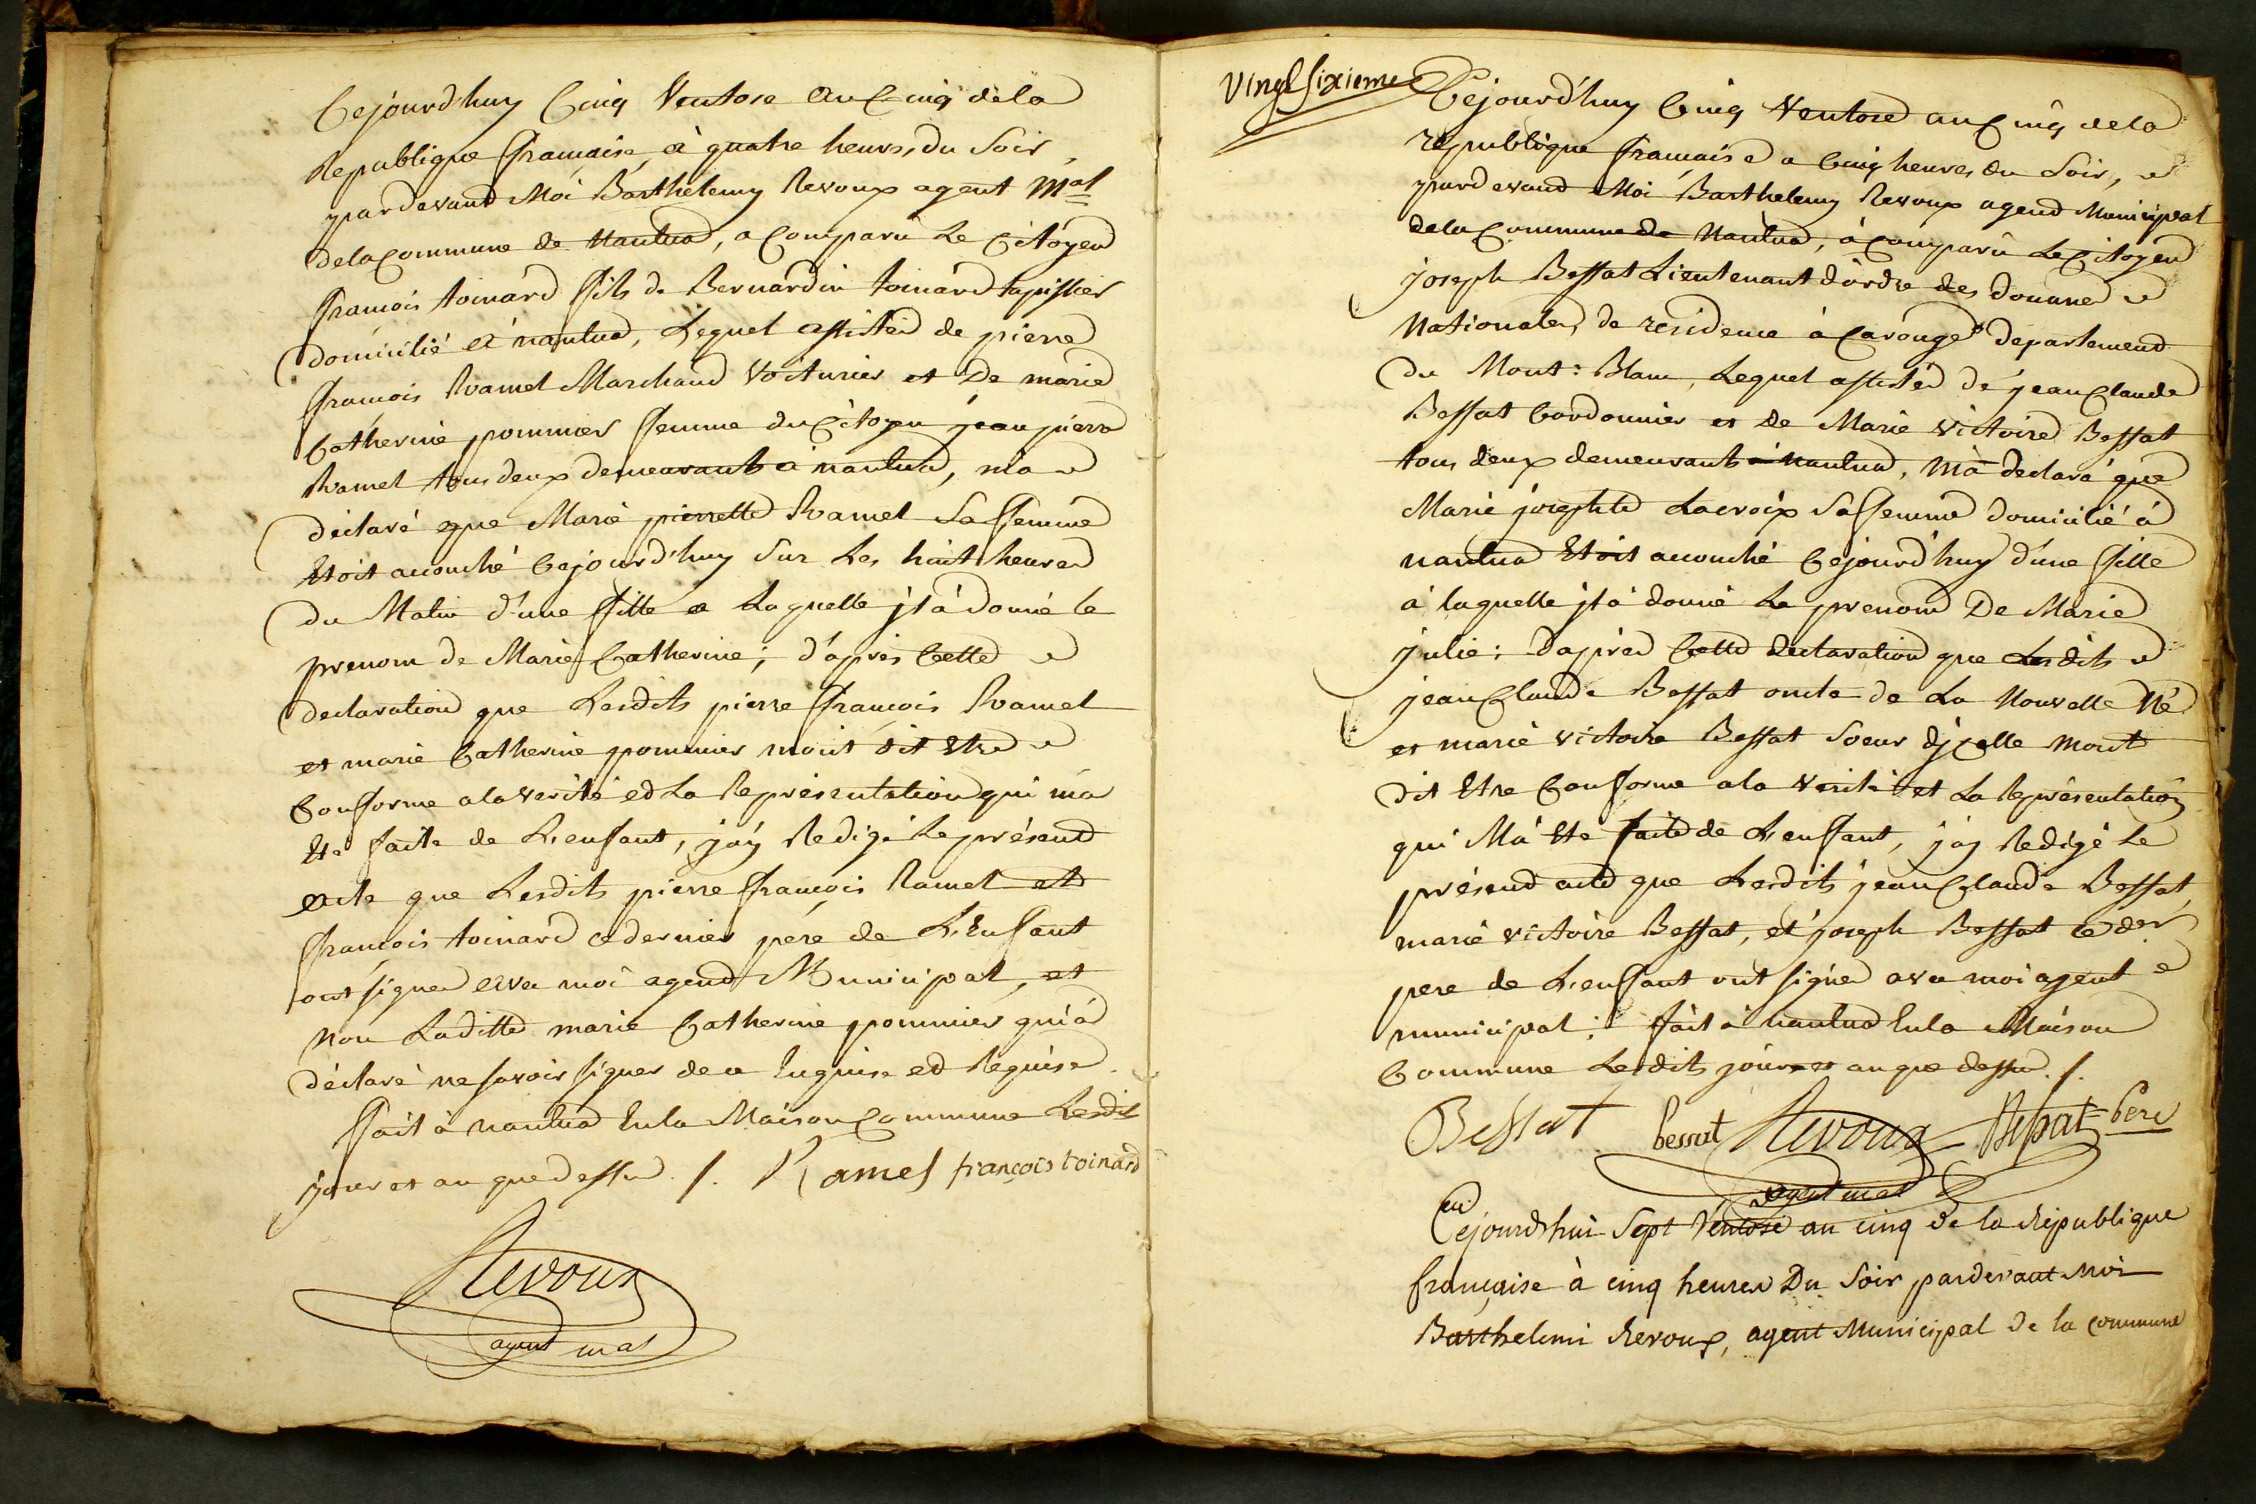 Cejourd'huy Cinq Ventose an Cinq de la
Republique française, à quatre heures du Soir,
pardevand Moi Barthelemy Revoux agent Mal
de la Commune de Nantua, a Comparu Le Citoyen
françois toinard fils de Bernardin toinard tapissier
domicilié à nantua, Lequel assisted de pierre
françois Ramel Marchand Voiturier et De marie
Catherine pommier femme du Citoyen jean pierre
Ramel tous deux demeurants à nantua, m'a
déclaré que Marie pierrette Ramel Sa femme
Etoit acouché Cejourd'huy Sur Les huit heures
du Matin d'une fille a Laquelle jl à donné le
prenom de Marie Catherine; d'après Cette
declaration que Lesdits pierre françois Ramel
et marie Catherine pommier m'ont dit Etre
Conforme a la verité ed La Représentation qui m'a
Ete faite de L'enfant, j'ay Redigé Le présend
acte que Lesdits pierre françois Ramel et
françois toinard ce dernier pére de L'Enfant
ont signer avec moi agend Municipal, et
non Laditte marie Catherine pommier qui à
déclaré ne savoir signer de ce Enquise ed Requise.
fait à nantua En la Maison Commune Lesdit
jour et an que dessus ./. Ramel françois toinard
Revoux
agent mal
Vingt sixieme
Cejourd'huy Cinq Ventose an Cinq de la
republique française a Cinq heures du Soir,
pardevand Moi Barthelemy Revoux agend Municipal
de la Commune de Nantua, à Comparu Le Citoyen
joseph Bessat Lieutenant d'ordre des Douanes
Nationales, de residence à Carouge departemend
du Mont: Blanc, Lequel assisted de jean Claude
Bessat Cordonnier et De Marie victoire Bessat
tous deux demeurants à Nantua, m'a declaré que
Marie josephte Lacroix Sa femme domicilié à
nantua Etoit acouché Cejourd'huy d'une fille
à laquelle jl à donné Le prenom De Marie
julie: D'après Cette declaration que Lesdits
jean Claude Bessat oncle de La Nouvelle Né
et marie victoire Bessat Soeur d'jcelle m'ont
dit Etre Conforme a la verité et La Représentation
qui M'à Ete faite de L'enfant, j'ay Redigé Le
présend acte que Lesdits jean Claude Bessat,
marie victoire Bessat, et joseph Bessat ce der
pere de L'enfant ont signer avec moi agent
municipal: fait à nantua En la Maison
Commune Lesdits jour et an que dessus ./.
Bessat bessat Revoux Bessat = Pere
agent mal
Cejourd'hui Sept Ventose an cinq de la République
française à cinq heures Du Soir pardevant Moi
Barthelemi Revoux, agent Municipal de la commune